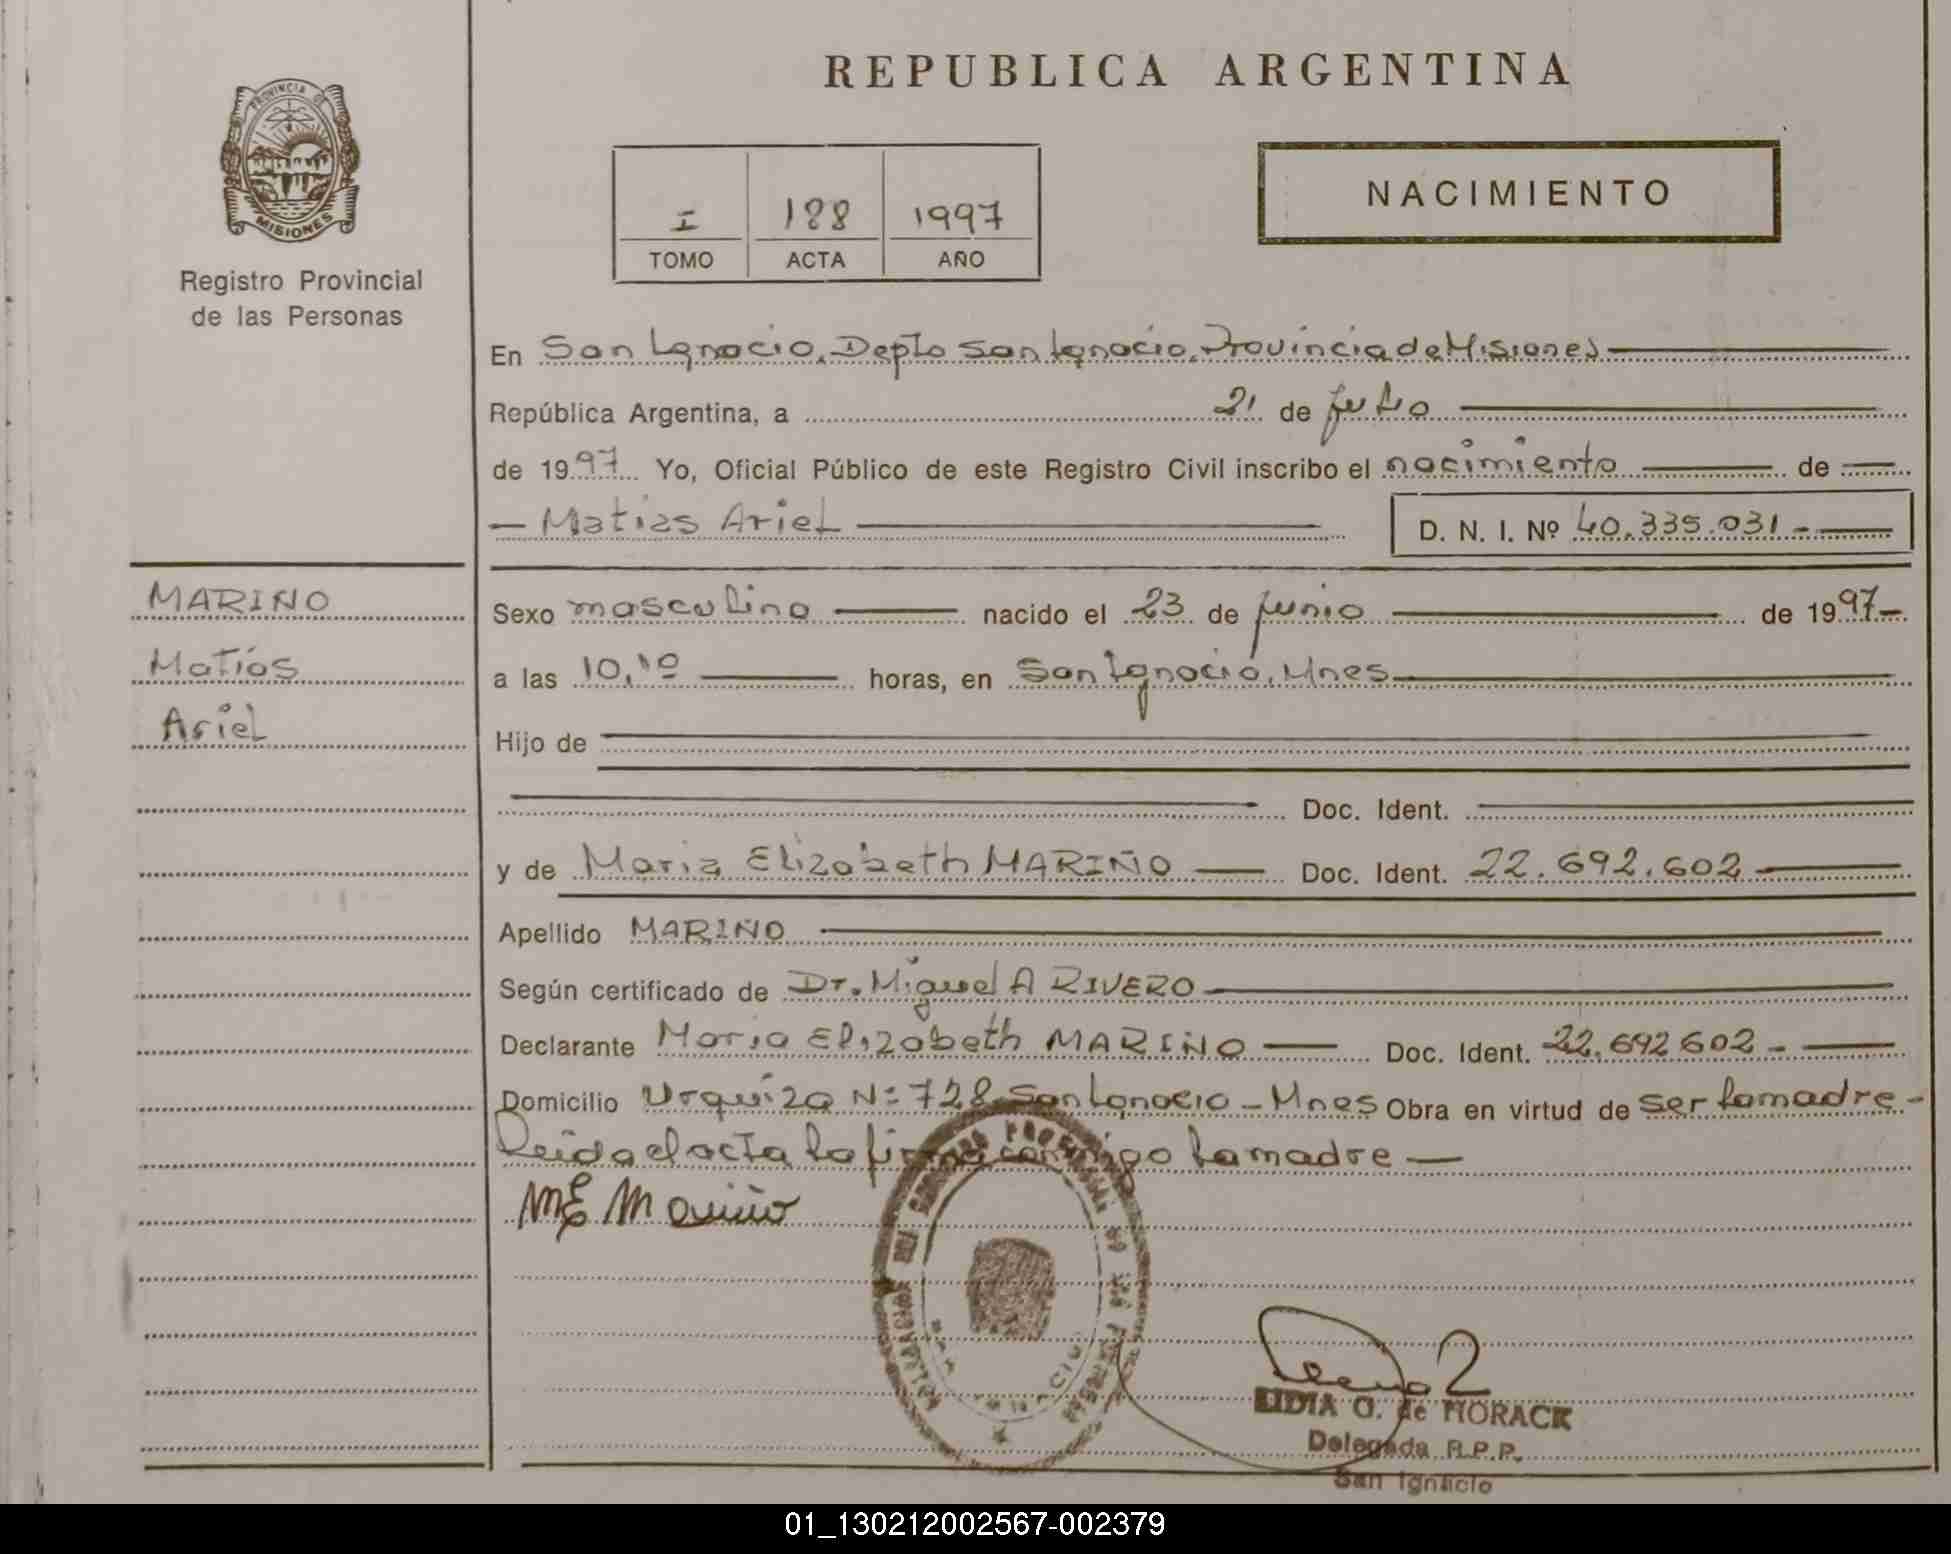 REPUBLICA ARGENTINA
PROVINCIA DE
MISIONES
Registro Provincial
de las Personas
I 188 1997
TOMO ACTA AÑO
NACIMIENTO
En San Ignacio, Depto San Ignacio, Provincia de Misiones
República Argentina, a 21 de julio
de 1997 Yo, Oficial Público de este Registro Civil inscribo el nacimiento de
Matias Ariel D. N. I. Nº 40.335.031.-
MARIÑO
Matías
Ariel
Sexo masculino nacido el 23 de junio de 1997-
a las 10,10 horas, en San Ignacio, Mnes
Hijo de
Doc. Ident.
y de Maria Elizabeth MARIÑO Doc. Ident. 22.692.602
Apellido MARIÑO
Según certificado de Dr. Miguel A RIVERO
Declarante Maria Elizabeth MARIÑO Doc. Ident. 22.692602-
Domicilio Urquiza Nº 728 San Ignacio - Mnes Obra en virtud de ser la madre-
Leida el acta la firma conmigo la madre
ME Mariño
LIDIA O. de HORACK
Delegada R.P.P.
San Ignacio
01_130212002567-002379